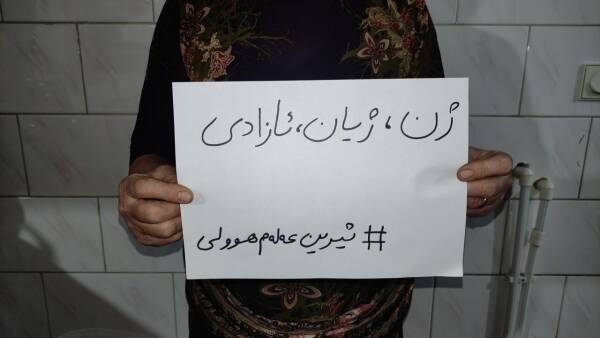 ژن، ژیان، ئازادی
# شیرین عەلەم هوولی